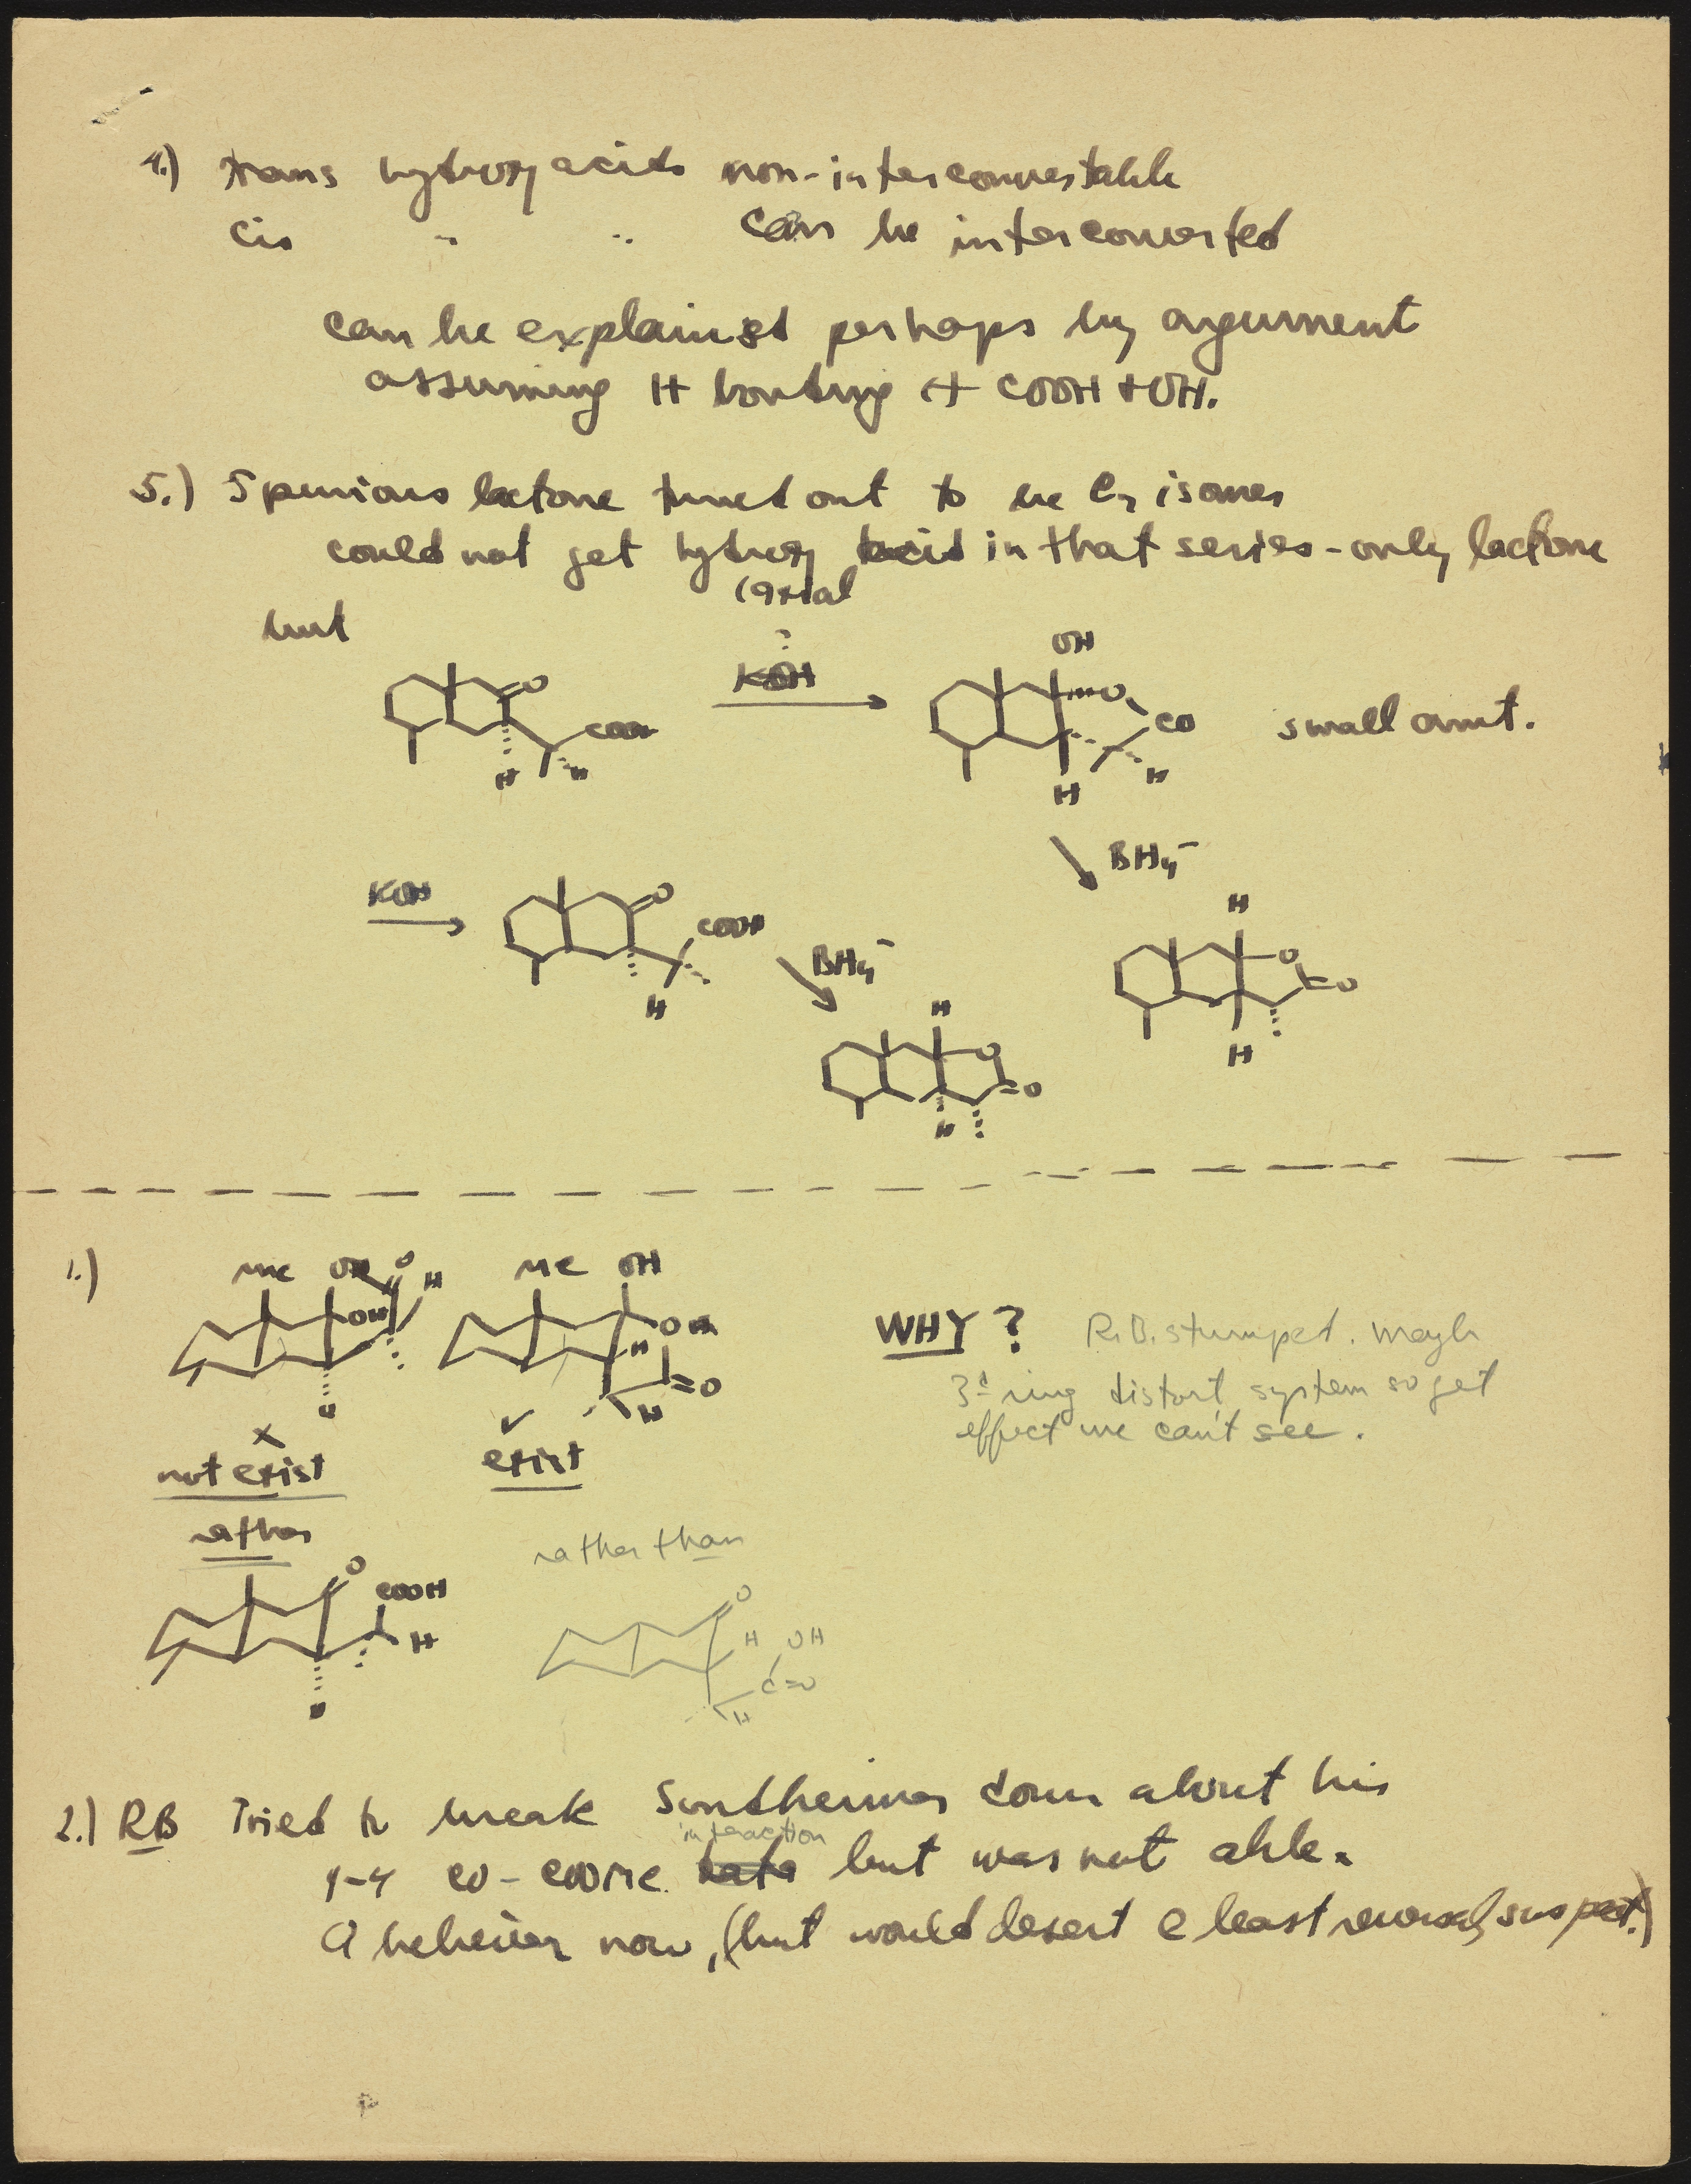 4.) trans hydroxy acids non-interconvertable
cis " " can be interconverted
can be explained perhaps by argument
assuming H bonding + COOH + OH.
5.) Spurious lactone turned out to be isomer
could not get hydroxy acid in that series - only lactone
(axial
but
KOH
OH
O
COOH
H
H
O
CO
H
H
small amt.
BH4-
KOH
O
COOH
H
BH4-
H
O
O
H
H
O
O
H
1.)
Me OH O H
OH
H
Me OH
OH
H
O
H
WHY? R.B. stumped. Mayb
3d ring distort system so get
effect we can't see.
x
not exist
✓
exist
rather
rather than
O
COOH
H
H
O
H OH
C=O
H
2.) RB Tried to break Sondheimer down about his
interaction
1-4 CO-COOMe but was not able.
A believer now, (but would desert @ least reversal, suspect.)